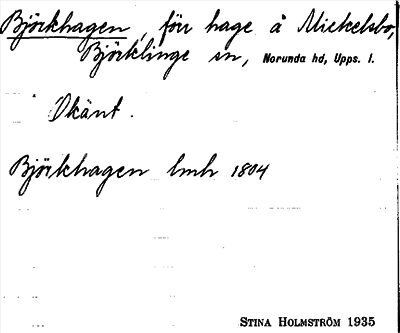 Björkhagen, förr hage å Mickelsbo,
Björklinge sn, Norunda hd, Upps. l.
Okänt.
Björkhagen lmh 1804
STINA HOLMSTRÖM 1935